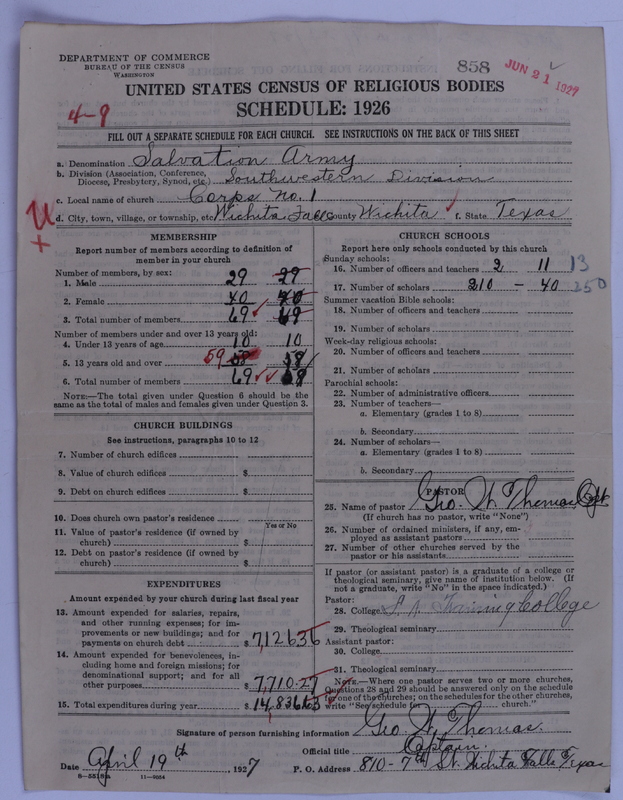 DEPARTMENT OF COMMERCE
BUREAU OF THE CENSUS
WASHINGTON
858
JUN 21 1927
UNITED STATES CENSUS OF RELIGIOUS BODIES
SCHEDULE: 1926
4-9
FILL OUT A SEPARATE SCHEDULE FOR EACH CHURCH. SEE INSTRUCTIONS ON THE BACK OF THIS SHEET
a. Denomination Salvation Army
b. Division (Association, Conference, Diocese, Presbytery, Synod, etc.) Southwestern Division
c. Local name of church Corps No. 1
d. City, town, village, or township, etc. Wichita Falls County Wichita f. State Texas
MEMBERSHIP
Report number of members according to definition of
member in your church
Number of members, by sex:
1. Male 29 29
2. Female 40 40
3. Total number of members 69 69
Number of members under and over 13 years old:
4. Under 13 years of age 10 10
5. 13 years old and over 59 58
6. Total number of members 69
NOTE:—The total given under Question 6 should be
same as the total of males and females given under Question 3.
CHURCH BUILDINGS
See instructions, paragraphs 10 to 12
7. Number of church edifices
8. Value of church edifices $
9. Debt on church edifices $
10. Does church own pastor's residence
Yes or No
11. Value of pastor's residence (if owned by
church) $
12. Debt on pastor's residence (if owned by
church) $
EXPENDITURES
Amount expended by your church during last fiscal year
13. Amount expended for salaries, repairs,
and other running expenses; for im-
provements or new buildings; and for
payments on church debt $ 7,126.36
14. Amount expended for benevolences, in-
cluding home and foreign missions; for
denominational support; and for all
other purposes $ 7,710.27
15. Total expenditures during year $ 14,836.63
CHURCH SCHOOLS
Report here only schools conducted by this church
Sunday schools:
16. Number of officers and teachers 2 11 13
17. Number of scholars 210 - 40 250
Summer vacation Bible schools:
18. Number of officers and teachers
19. Number of scholars
Week-day religious schools:
20. Number of officers and teachers
21. Number of scholars
Parochial schools:
22. Number of administrative officers
23. Number of teachers—
a. Elementary (grades 1 to 8)
b. Secondary
24. Number of scholars—
a. Elementary (grades 1 to 8)
b. Secondary
PASTOR
25. Name of pastor Geo. W. Thomas, Capt.
(If church has no pastor, write "None")
26. Number of ordained ministers, if any, em-
ployed as assistant pastors
27. Number of other churches served by the
pastor or his assistants
If pastor (or assistant pastor) is a graduate of a college or
theological seminary, give name of institution below. (If
not a graduate, write "No" in the space indicated.)
Pastor:
28. College S. A. Training College
29. Theological seminary
Assistant pastor:
30. College
31. Theological seminary
NOTE.—Where one pastor serves two or more churches,
Questions 28 and 29 should be answered only on the schedule
for one of the churches; on the schedules for the other churches,
write "See schedule for church."
Signature of person furnishing information Geo. W. Thomas.
Official title Captain.
Date April 19th, 1927 P. O. Address 810-7th St. Wichita Falls Texas
8-5518a 11-9064